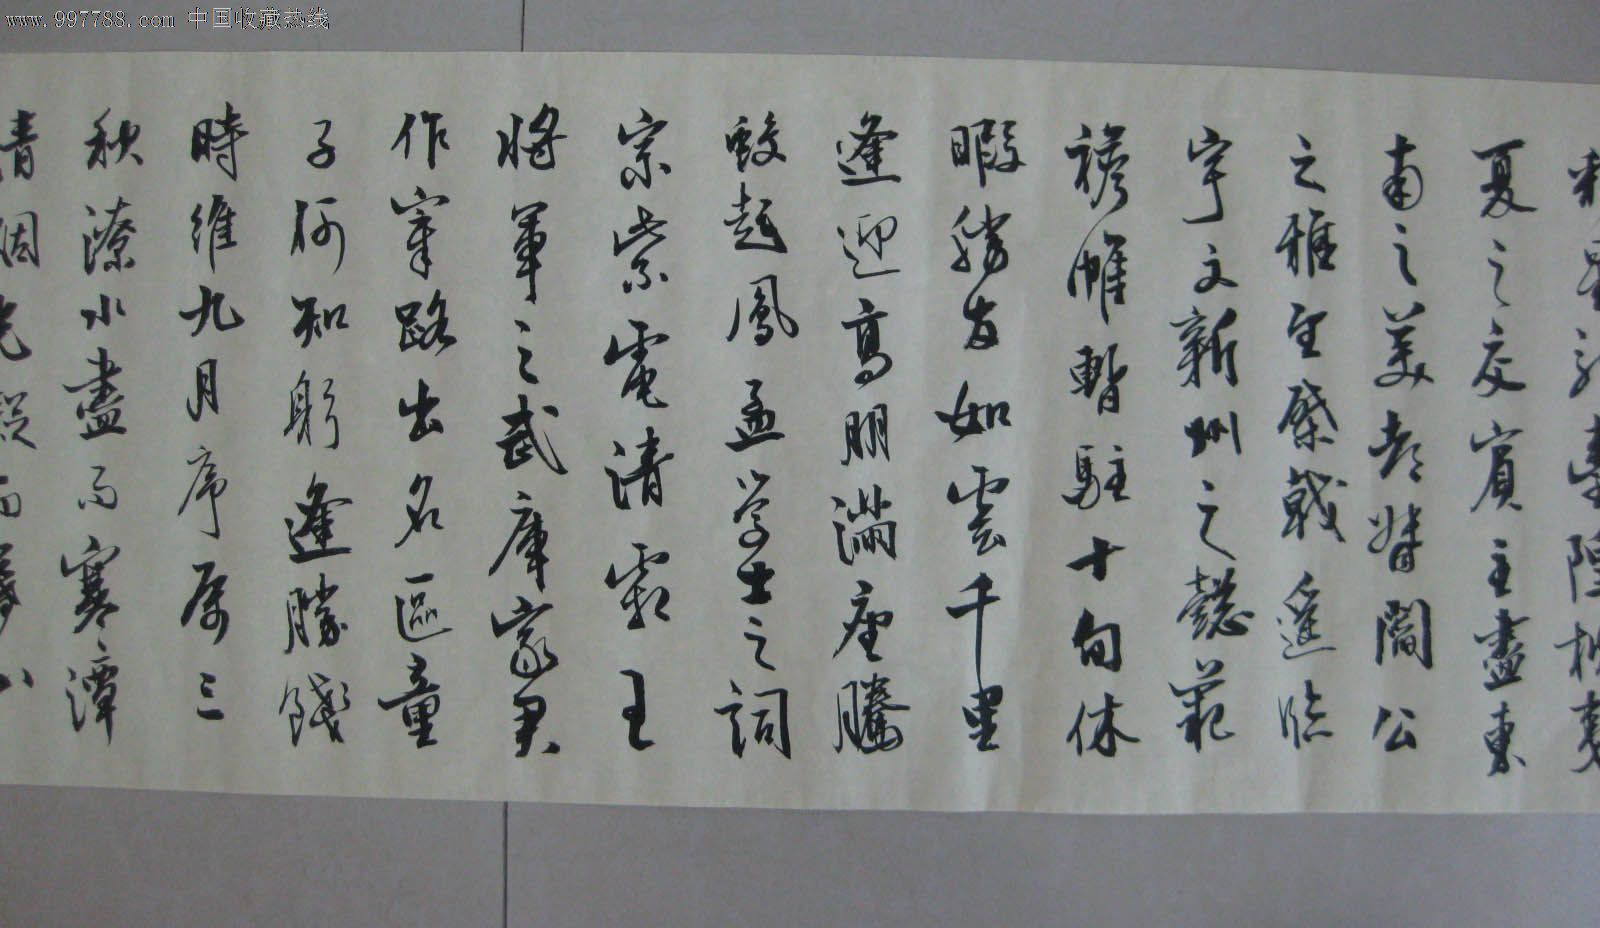 www.997788.com 中国收藏热线
彩星驰臺隍枕夷
夏之交賓主盡東
南之美都督閻公
之雅望棨戟遥臨
宇文新州之懿範
襜帷暫駐十旬休
暇勝友如雲千里
逢迎高朋滿座騰
蛟起鳳孟学士之詞
宗紫電清霜王
將軍之武庫家君
作宰路出名區童
子何知躬逢勝餞
時維九月序属三
秋潦水盡而寒潭
清烟光凝而暮山